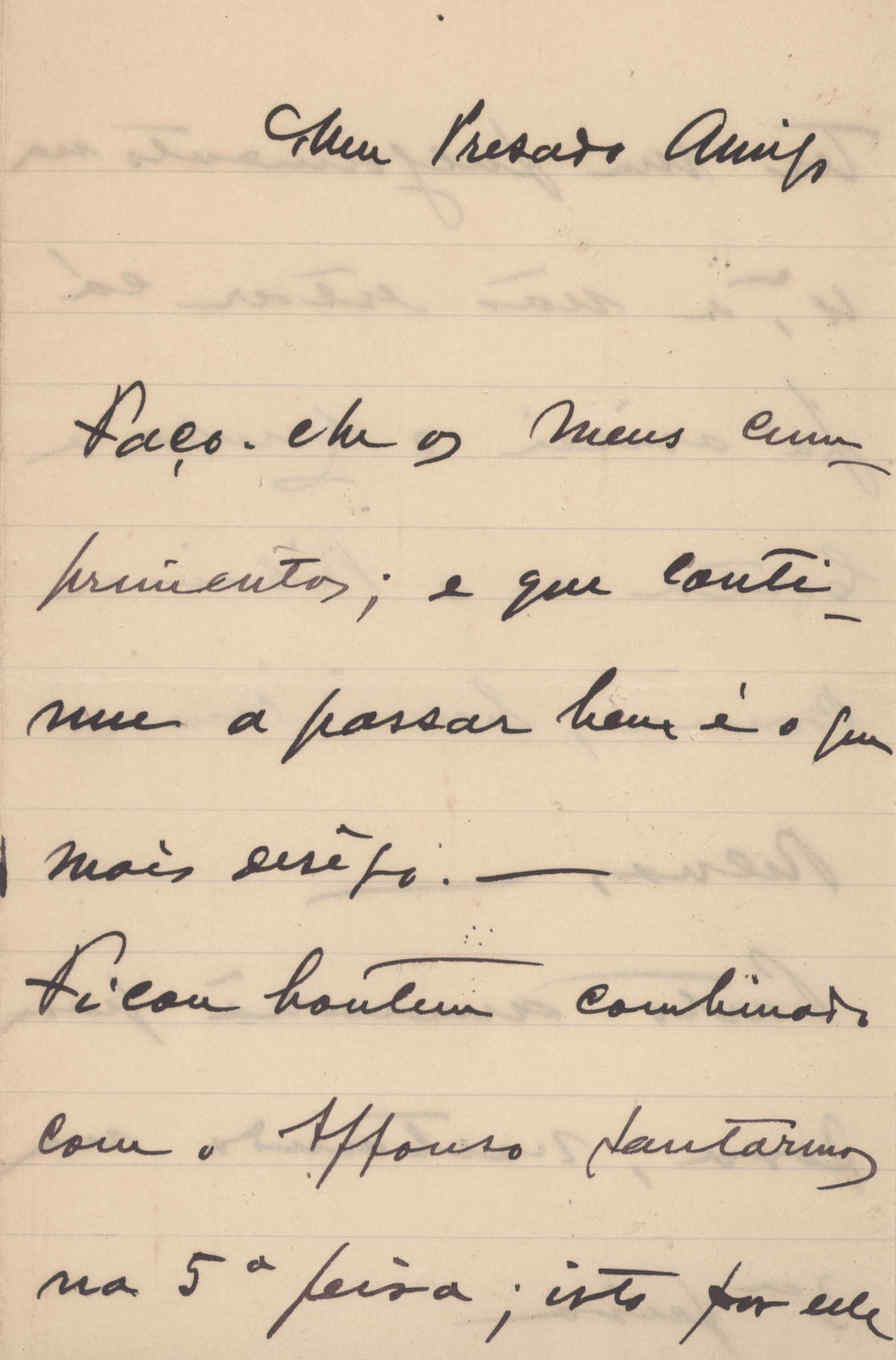 Meu Presado Amigo
Faço-lhe os meus cum-
primentos; e que conti-
nue a passar bem é o que
mais desêjo. —
Ficou hontem combinado
com o Affonso jantármos
na 5ª feira; isto por elle